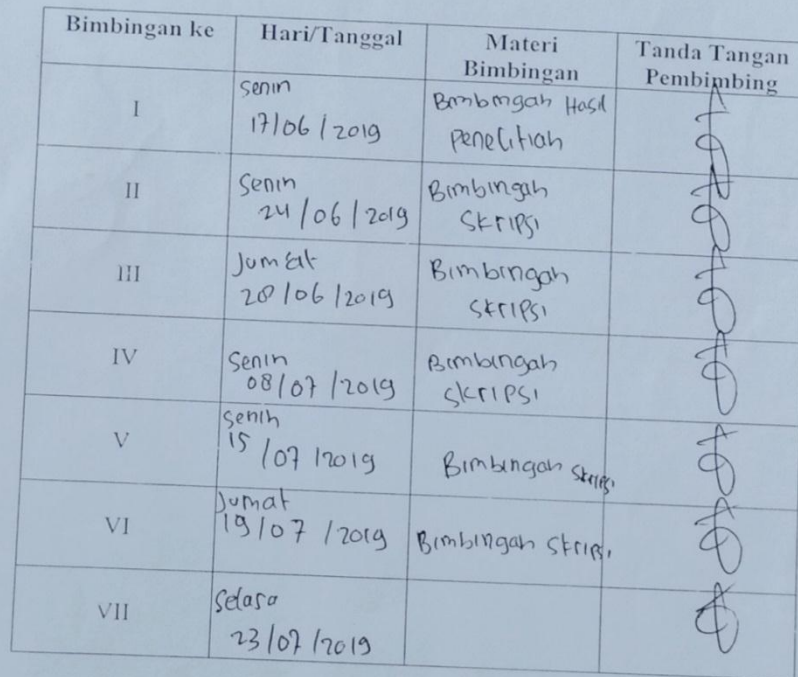 Bimbingan ke Hari/Tanggal Materi Bimbingan Tanda Tangan Pembimbing
I Senin 17/06/2019 Bimbingan Hasil Penelitian
II Senin 24/06/2019 Bimbingan Skripsi
III Jumat 28/06/2019 Bimbingan Skripsi
IV Senin 08/07/2019 Bimbingan Skripsi
V Senin 15/07/2019 Bimbingan Skripsi
VI Jumat 19/07/2019 Bimbingan Skripsi
VII Selasa 23/07/2019